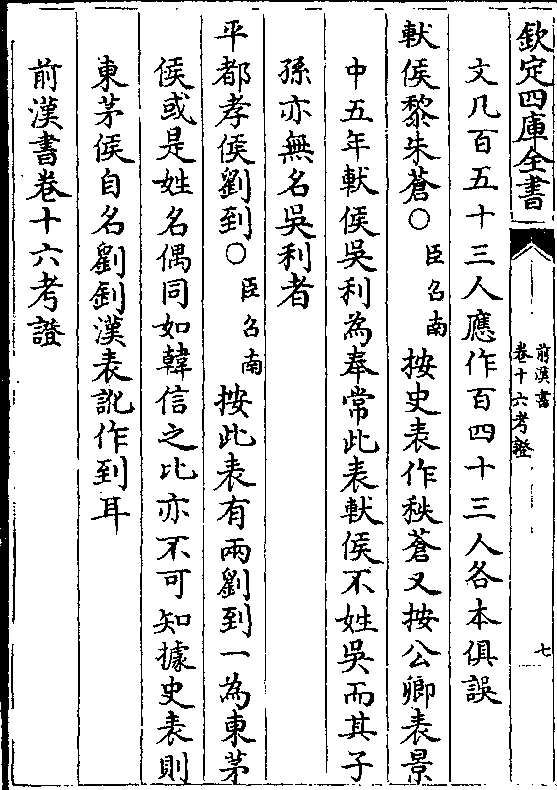 欽定四庫全書
前漢書
卷十六考證
七
文凡百五十三人應作百四十三人各本俱誤
軑侯黎朱蒼○臣召南按史表作秩蒼又按公卿表景
中五年軑侯吳利為奉常此表軑侯不姓吳而其子
孫亦無名吳利者
平都孝侯劉到○臣召南按此表有兩劉到一為東茅
侯或是姓名偶同如韓信之比亦不可知據史表則
東茅侯自名劉釗漢表訛作到耳
前漢書卷十六考證